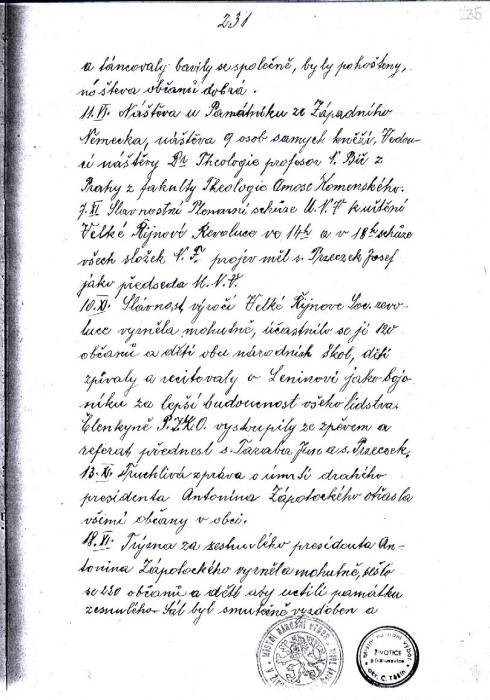 231
235
a táncovaly bavily se společně, byly pohoštěny,
návšteva občanů dobrá.
11.VI. Návštěva u Památníku ze Západního
Německa, návštěva 9 osob samych kněží. Vedou-
cí návštěvy Dr Theologie profesor S. Bič z
Prahy z fakulty Theologie Amose Komenského.
7.XI Slavnostní Plenarní schůze M.N.V. k uctění
Velké Říjnové Revoluce ve 14h a v 18h schůze
všech složek N.F. projev měl s. Przeczek Josef
jako předseda M.N.V.
10.XI. Slávnost výročí Velké Říjnove Soc. revo-
luce vyzněla mohutně, účastnilo se jí 120
občanů a dětí obu národních škol, děti
zpívaly a recitovaly o Leninovi jako bojo-
níku za lepší budoucnost všeho lidstva.
Členkyně P.Z.K.O. vystoupily se zpěvem a
referat přednesl s. Taraba Jan a s. Przeczek.
13.XI. Truchlivá zpráva o úmrtí drahého
presidenta Antonína Zápotockého otřasla
všemi občany v obci.
18.XI. Tryzna za zesnulého presidenta An-
tonína Zápotockého vyzněla mohutně, sešlo
se 230 občanů a dětí aby uctili památku
zesnulého. Sál byl smutečně vyzdoben a
MÍSTNÍ NÁRODNÍ VÝBOR
ŽIVOTICE
okr. Č. Těšín